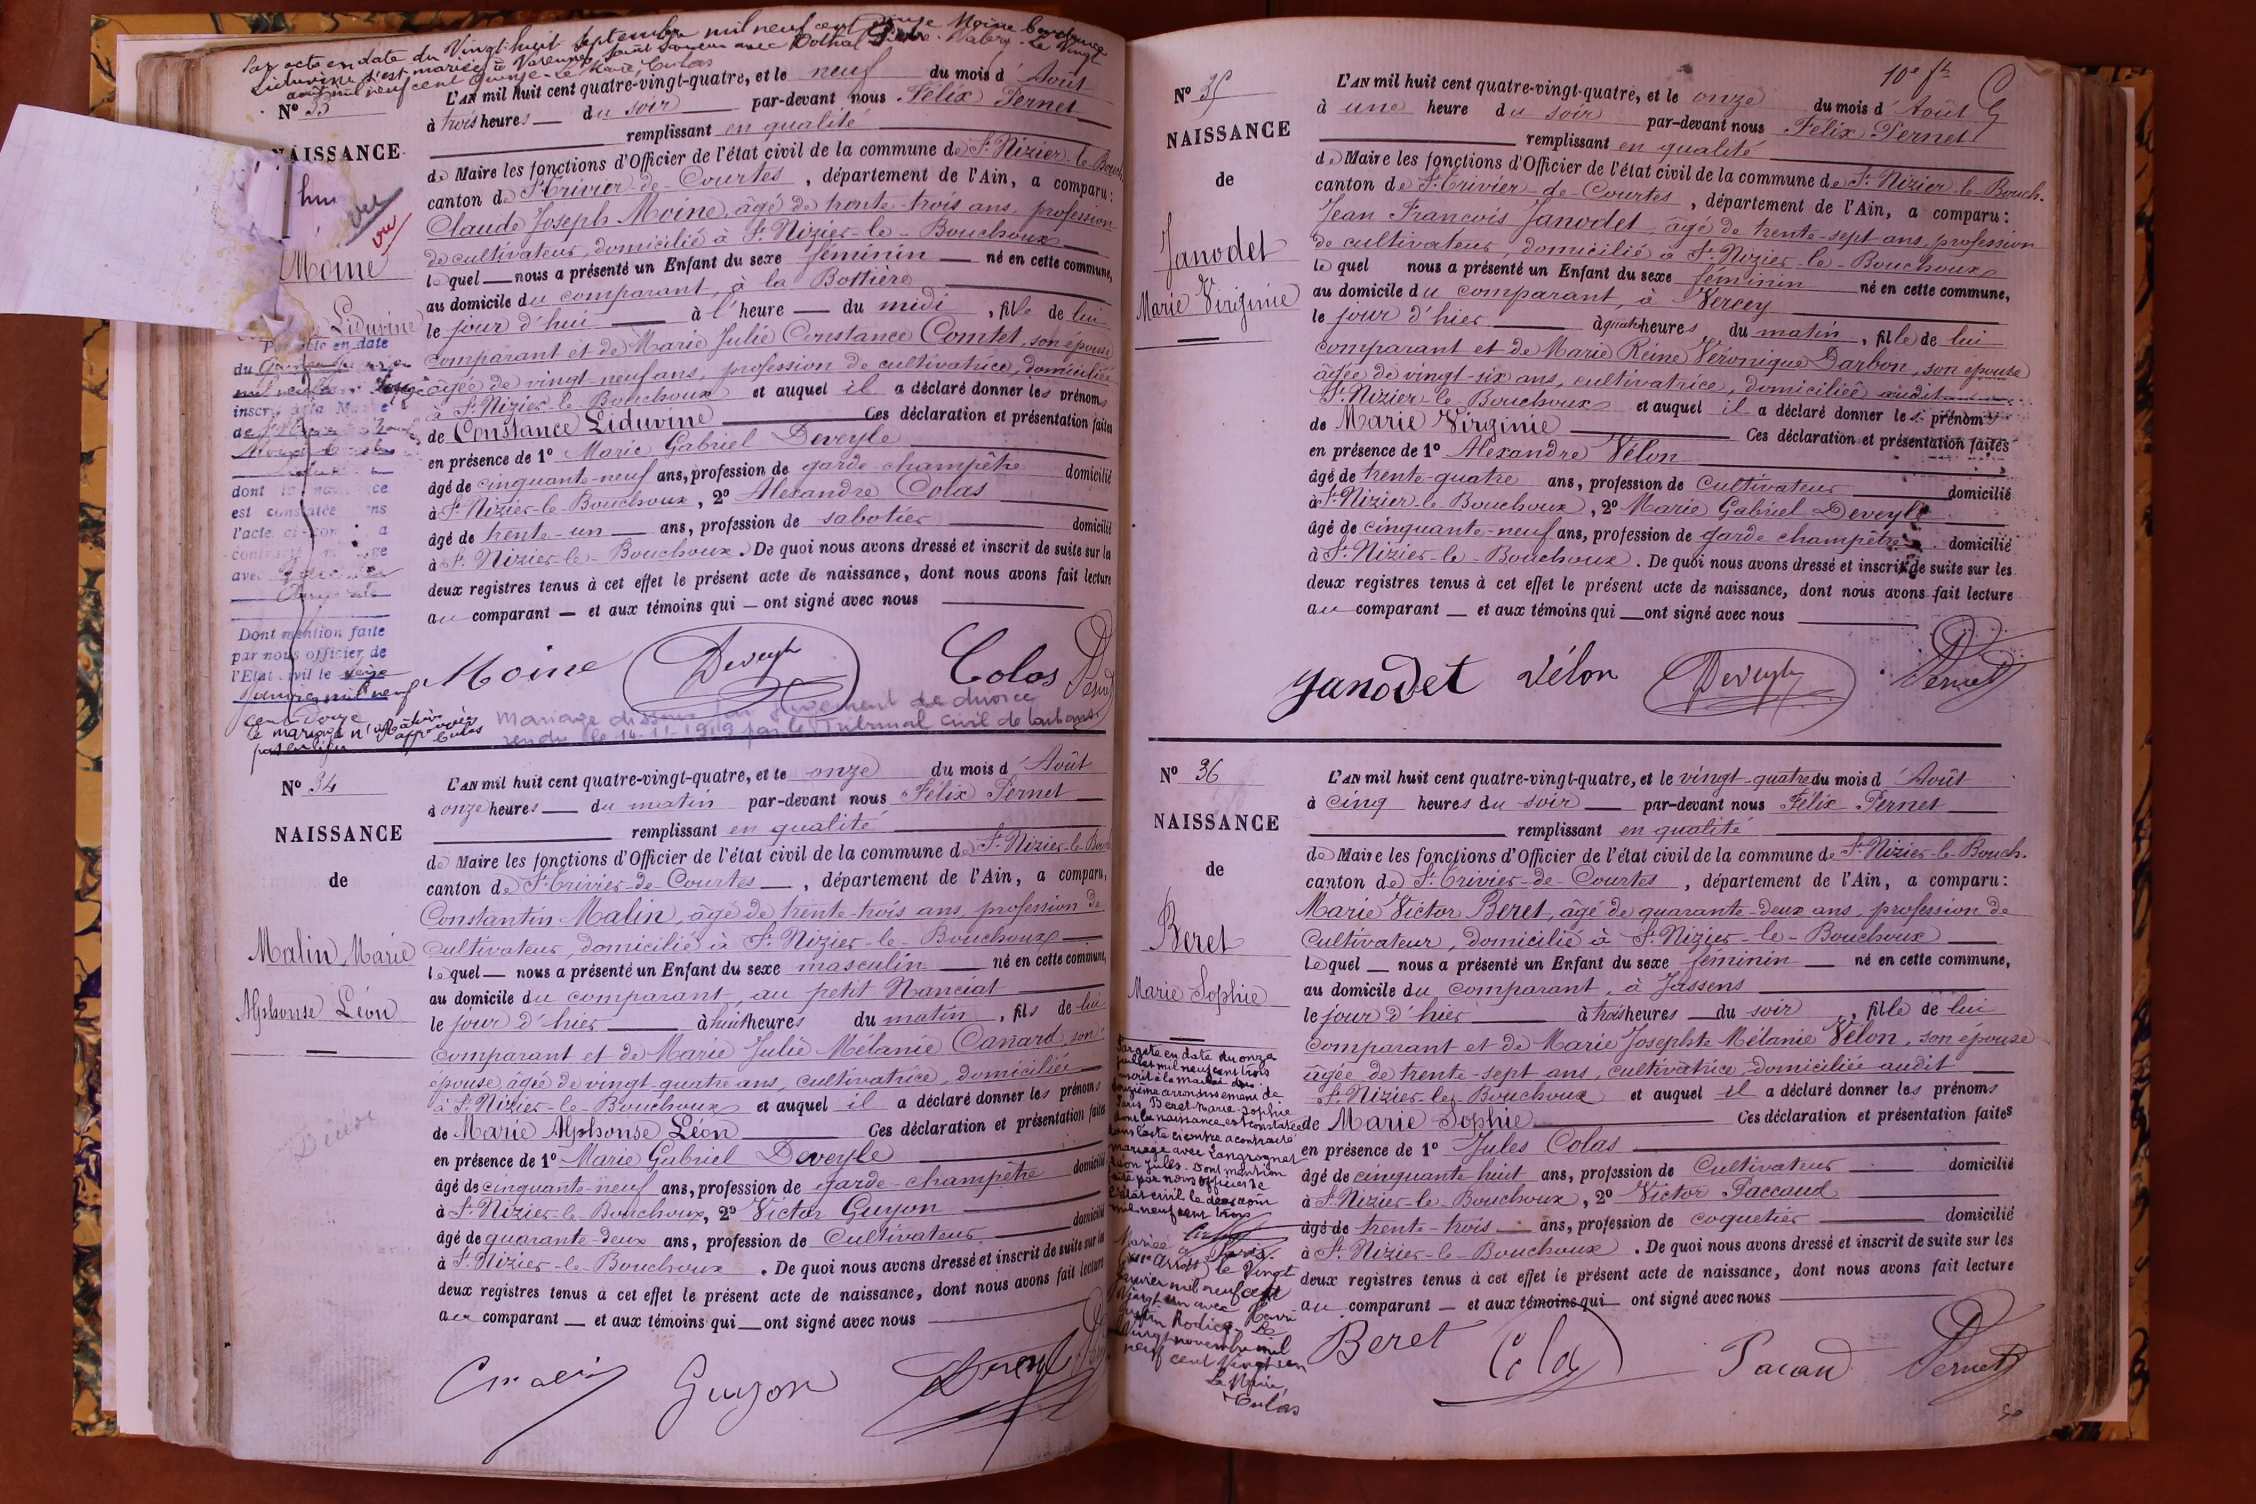 Par acte en date du Vingt-huit Septembre mil neuf cent Moine Constance
Liduvine s'est mariée à Varennes Saint Sauveur avec Pierre-Valéry. Le Vingt
août mil neuf cent quinze. Le Maire, Colas
N° 33
NAISSANCE
hui
vu
vu
Moine
Liduvine
acte en date
du
inscrit à la Mairie
de
dont la naissance
est constatée dans
l'acte ci-contre a
contracté mariage
avec
Dont mention faite
par nous officier de
l'Etat civil le seize
Janvier mil neuf
cent douze
Le mariage n'
pas eu lieu approuvée
Colas
L'AN mil huit cent quatre-vingt-quatre, et le neuf du mois d'Août
à trois heures du soir par-devant nous Félix Pernet
remplissant en qualité
de Maire les fonctions d'Officier de l'état civil de la commune de St. Nizier-le-Bouch.
canton de St. Trivier-de-Courtes, département de l'Ain, a comparu:
Claude Joseph Moine, âgé de trente-trois ans, profession
de cultivateur, domicilié à St. Nizier-le-Bouchoux
lequel nous a présenté un Enfant du sexe féminin né en cette commune,
au domicile du comparant, à la Bottière
le jour d'hui à l'heure du midi, fille de lui
comparant et de Marie Julie Constance Comtet, son épouse
âgée de vingt-neuf ans, profession de cultivatrice, domiciliée
à St. Nizier-le-Bouchoux et auquel il a déclaré donner les prénoms
de Constance Liduvine Ces déclaration et présentation faites
en présence de 1° Marie Gabriel Deveyle
âgé de cinquante-neuf ans, profession de garde-champêtre domicilié
à St. Nizier-le-Bouchoux, 2° Alexandre Colas
âgé de trente-un ans, profession de sabotier domicilié
à St. Nizier-le-Bouchoux. De quoi nous avons dressé et inscrit de suite sur les
deux registres tenus à cet effet le présent acte de naissance, dont nous avons fait lecture
au comparant et aux témoins qui ont signé avec nous
Moine Deveyle Colas Pernet
Mariage dissous par jugement de divorce
rendu le 14-11-1919 par le Tribunal Civil de
N° 34
NAISSANCE
de
Malin Marie
Alphonse Léon
L'AN mil huit cent quatre-vingt-quatre, et le onze du mois d'Août
à onze heures du matin par-devant nous Félix Pernet
remplissant en qualité
de Maire les fonctions d'Officier de l'état civil de la commune de St. Nizier-le-Bouch
canton de St. Trivier-de-Courtes, département de l'Ain, a comparu,
Constantin Malin, âgé de trente-trois ans, profession de
Cultivateur, domicilié à St. Nizier-le-Bouchoux
lequel nous a présenté un Enfant du sexe masculin né en cette commune,
au domicile du comparant, au petit Nanciat
le jour d'hier à huit heures du matin, fils de lui
comparant et de Marie Julie Mélanie Canard, son
épouse, âgée de vingt-quatre ans, cultivatrice, domiciliée
à St. Nizier-le-Bouchoux et auquel il a déclaré donner les prénoms
de Marie Alphonse Léon Ces déclaration et présentation faites
en présence de 1° Marie Gabriel Deveyle
âgé de cinquante-neuf ans, profession de garde-champêtre domicilié
à St. Nizier-le-Bouchoux, 2° Victor Guyon
âgé de quarante-deux ans, profession de Cultivateur domicilié
à St. Nizier-le-Bouchoux. De quoi nous avons dressé et inscrit de suite sur les
deux registres tenus à cet effet le présent acte de naissance, dont nous avons fait lecture
au comparant et aux témoins qui ont signé avec nous
Malin Guyon Deveyle
10e ft
N° 35
NAISSANCE
de
Janodet
Marie Virginie
L'AN mil huit cent quatre-vingt-quatre, et le onze du mois d'Août
à une heure du soir par-devant nous Félix Pernet
remplissant en qualité
de Maire les fonctions d'Officier de l'état civil de la commune de St. Nizier-le-Bouch.
canton de St. Trivier-de-Courtes, département de l'Ain, a comparu:
Jean François Janodet, âgé de trente-sept ans, profession
de cultivateur, domicilié à St. Nizier-le-Bouchoux
lequel nous a présenté un Enfant du sexe féminin né en cette commune,
au domicile du comparant, à Vercey
le jour d'hier à quatre heures du matin, fille de lui
comparant et de Marie Reine Véronique Darbon, son épouse
âgée de vingt-six ans, cultivatrice, domiciliée audit
St. Nizier-le-Bouchoux et auquel il a déclaré donner les prénoms
de Marie Virginie Ces déclaration et présentation faites
en présence de 1° Alexandre Vélon
âgé de trente-quatre ans, profession de Cultivateur domicilié
à St. Nizier-le-Bouchoux, 2° Marie Gabriel Deveyle
âgé de cinquante-neuf ans, profession de garde champêtre domicilié
à St. Nizier-le-Bouchoux. De quoi nous avons dressé et inscrit de suite sur les
deux registres tenus à cet effet le présent acte de naissance, dont nous avons fait lecture
au comparant et aux témoins qui ont signé avec nous
Janodet Vélon Deveyle Pernet
N° 36
NAISSANCE
de
Beret
Marie Sophie
Par acte en date du onze
juillet mil neuf cent trois
inscrit à la mairie du
douzième arrondissement de
Paris, Beret Marie Sophie
dont la naissance est constatée
dans l'acte ci contre a contracté
mariage avec Langrognet
Léon Jules. Dont mention
faite par nous officier de
l'état civil le deux août
mil neuf cent trois
Mariée à Paris
arrdt le Vingt
janvier mil neuf cent
vingt-un avec Henri
Rodier. Le
Vingt novembre mil
neuf cent Vingt un
Le Maire
Colas
L'AN mil huit cent quatre-vingt-quatre, et le vingt-quatre du mois d'Août
à cinq heures du soir par-devant nous Félix Pernet
remplissant en qualité
de Maire les fonctions d'Officier de l'état civil de la commune de St. Nizier-le-Bouch.
canton de St. Trivier-de-Courtes, département de l'Ain, a comparu:
Marie Victor Beret, âgé de quarante-deux ans, profession de
Cultivateur, domicilié à St. Nizier-le-Bouchoux
lequel nous a présenté un Enfant du sexe féminin né en cette commune,
au domicile du comparant, à Jassens
le jour d'hier à trois heures du soir, fille de lui
comparant et de Marie Josephte Mélanie Vélon, son épouse
âgée de trente-sept ans, cultivatrice, domiciliée audit
St. Nizier-le-Bouchoux et auquel il a déclaré donner les prénoms
de Marie Sophie Ces déclaration et présentation faites
en présence de 1° Jules Colas
âgé de cinquante huit ans, profession de Cultivateur domicilié
à St. Nizier-le-Bouchoux, 2° Victor Paccaud
âgé de trente-trois ans, profession de coquetier domicilié
à St. Nizier-le-Bouchoux. De quoi nous avons dressé et inscrit de suite sur les
deux registres tenus à cet effet le présent acte de naissance, dont nous avons fait lecture
au comparant et aux témoins qui ont signé avec nous
Beret Colas Pacaud Pernet